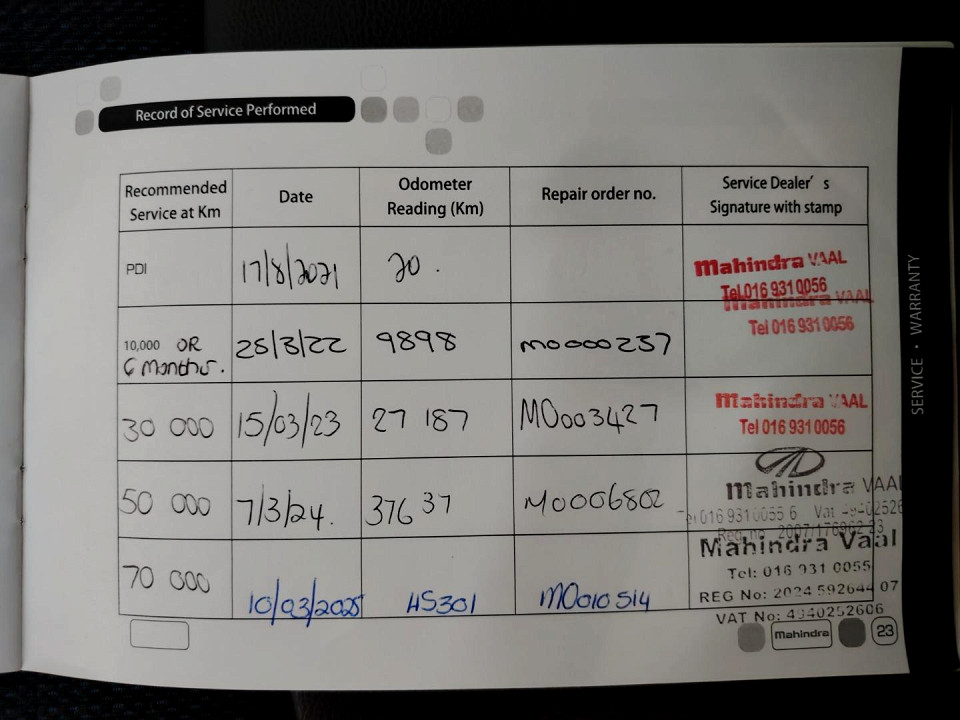 Record of Service Performed
Recommended Service at Km | Date | Odometer Reading (Km) | Repair order no. | Service Dealer's Signature with stamp
PDI | 17/8/2021 | 20 . | | Mahindra VAAL Tel.016 931 0056
10,000 OR 6 months. | 25/3/22 | 9898 | M0000237 | Mahindra VAAL Tel 016 931 0056
30 000 | 15/03/23 | 27 187 | M0003427 | Mahindra VAAL Tel 016 931 0056
50 000 | 7/3/24. | 376 37 | M0006802 | Mahindra VAAL
70 000 | 10/03/2025 | 45301 | M0010514 | Mahindra Vaal Tel: 016 931 0055 REG No: 2024 592644 07 VAT No: 4940252606
SERVICE • WARRANTY
Mahindra
23